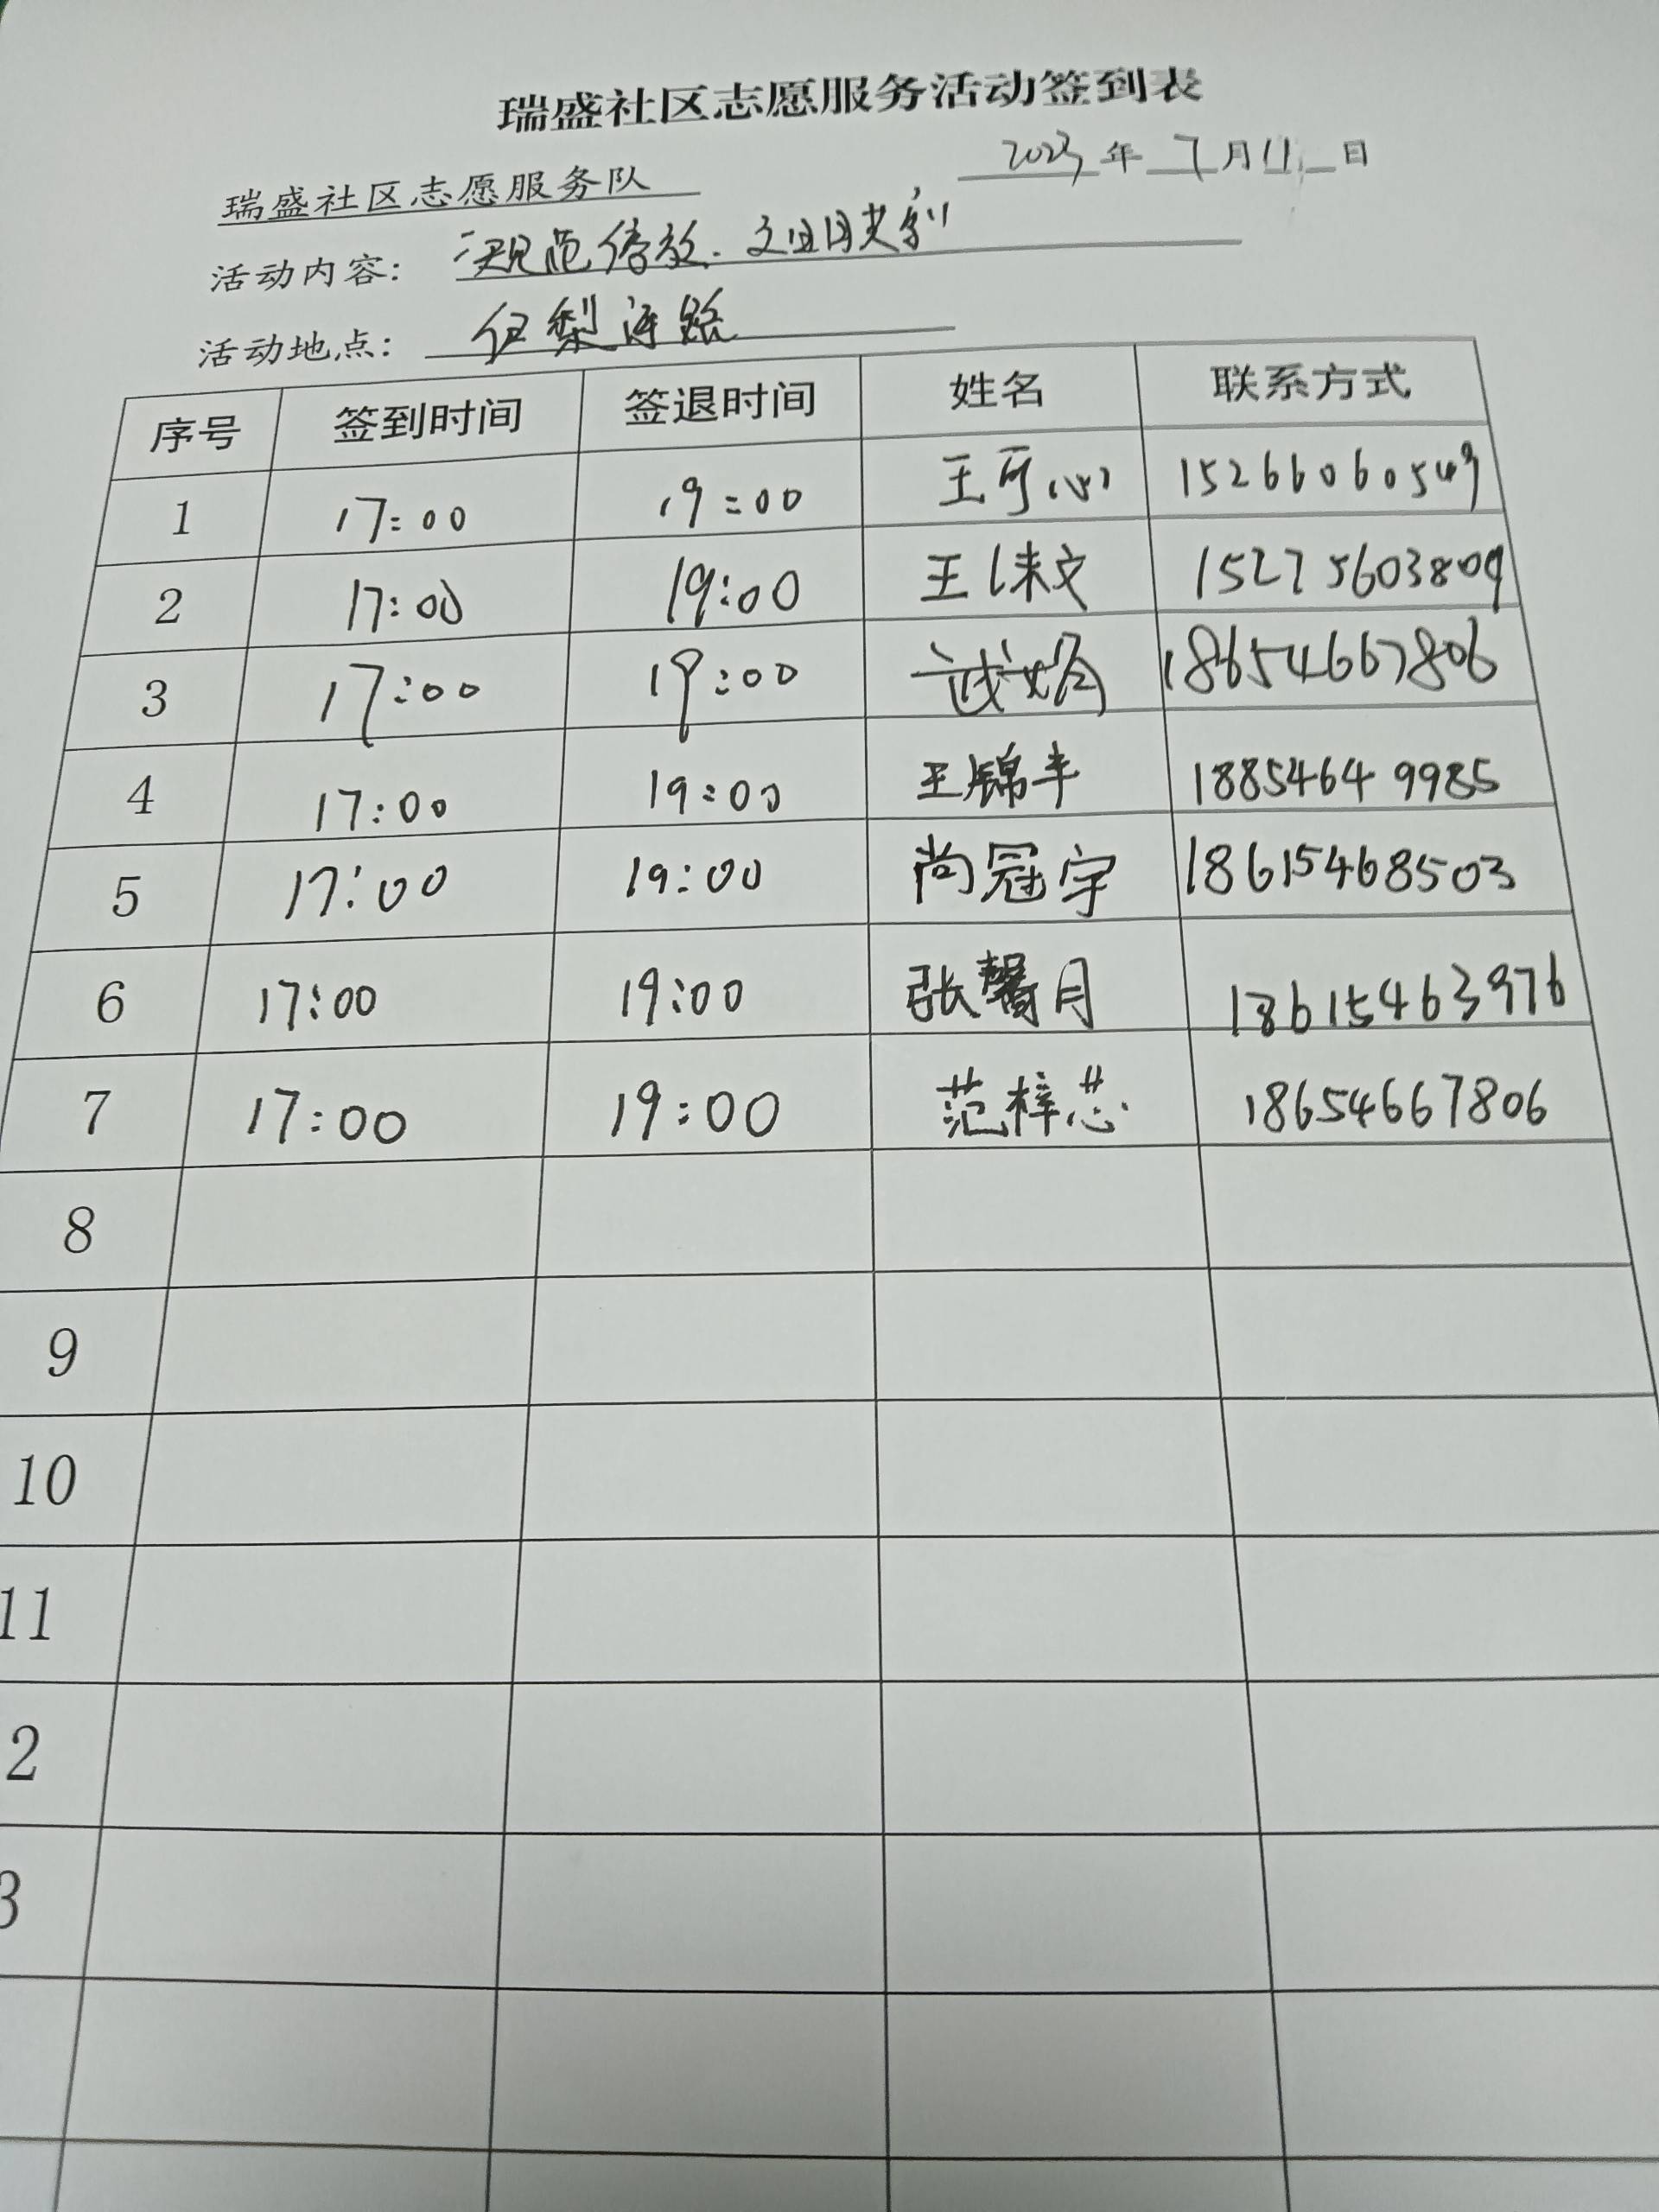 瑞盛社区志愿服务活动签到表
2023年 7月11日
瑞盛社区志愿服务队
活动内容: 规范停放.文明共创
活动地点: 红梨连路
序号 签到时间 签退时间 姓名 联系方式
1 17:00 19:00 王可心 15266060549
2 17:00 19:00 王文 15275603809
3 17:00 19:00 18654667806
4 17:00 19:00 王锦丰 18854649985
5 17:00 19:00 尚冠宇 18615468503
6 17:00 19:00 张馨月 18615463976
7 17:00 19:00 范梓芯 18654667806
8
9
10
11
2
3